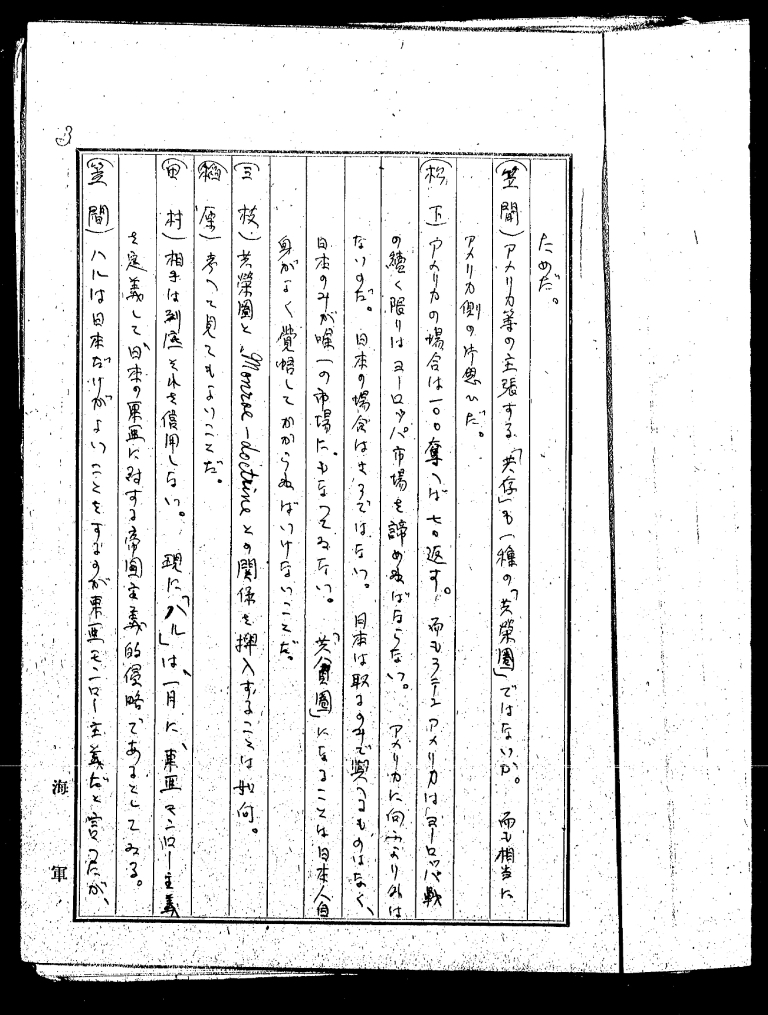 3
ためだ。
(笠間) アメリカ等の主張する「共存」も一種の「共榮圏」ではないか。而も相当に
アメリカ側の片思ひだ。
(松下) アメリカの場合は一〇〇奪へば七〇返す。而もラテンアメリカはヨーロッパ戦
の續く限りはヨーロッパ市場を諦めねばならない。アメリカに向ふより外は
ないのだ。日本の場合はさうではない。日本は取るのみで與へるものはなく、
日本のみが唯一の市場にもなつてゐない。「共貧圏」になることは日本人自
身がよく覺悟してかからねばいけないことだ。
(三枝) 共榮圏とMonroe-doctrineとの関係を挿入することは如何。
(稲原) 考へて見てもよいことだ。
(田村) 相手は到底それを信用しない。現に「ハル」は一月に、東亜モンロー主義
を定義して日本の東亜に対する帝國主義的侵略であるとしてゐる。
(笠間) ハルは日本だけがよいことをするのが東亜モンロー主義だと言つたが、
海軍